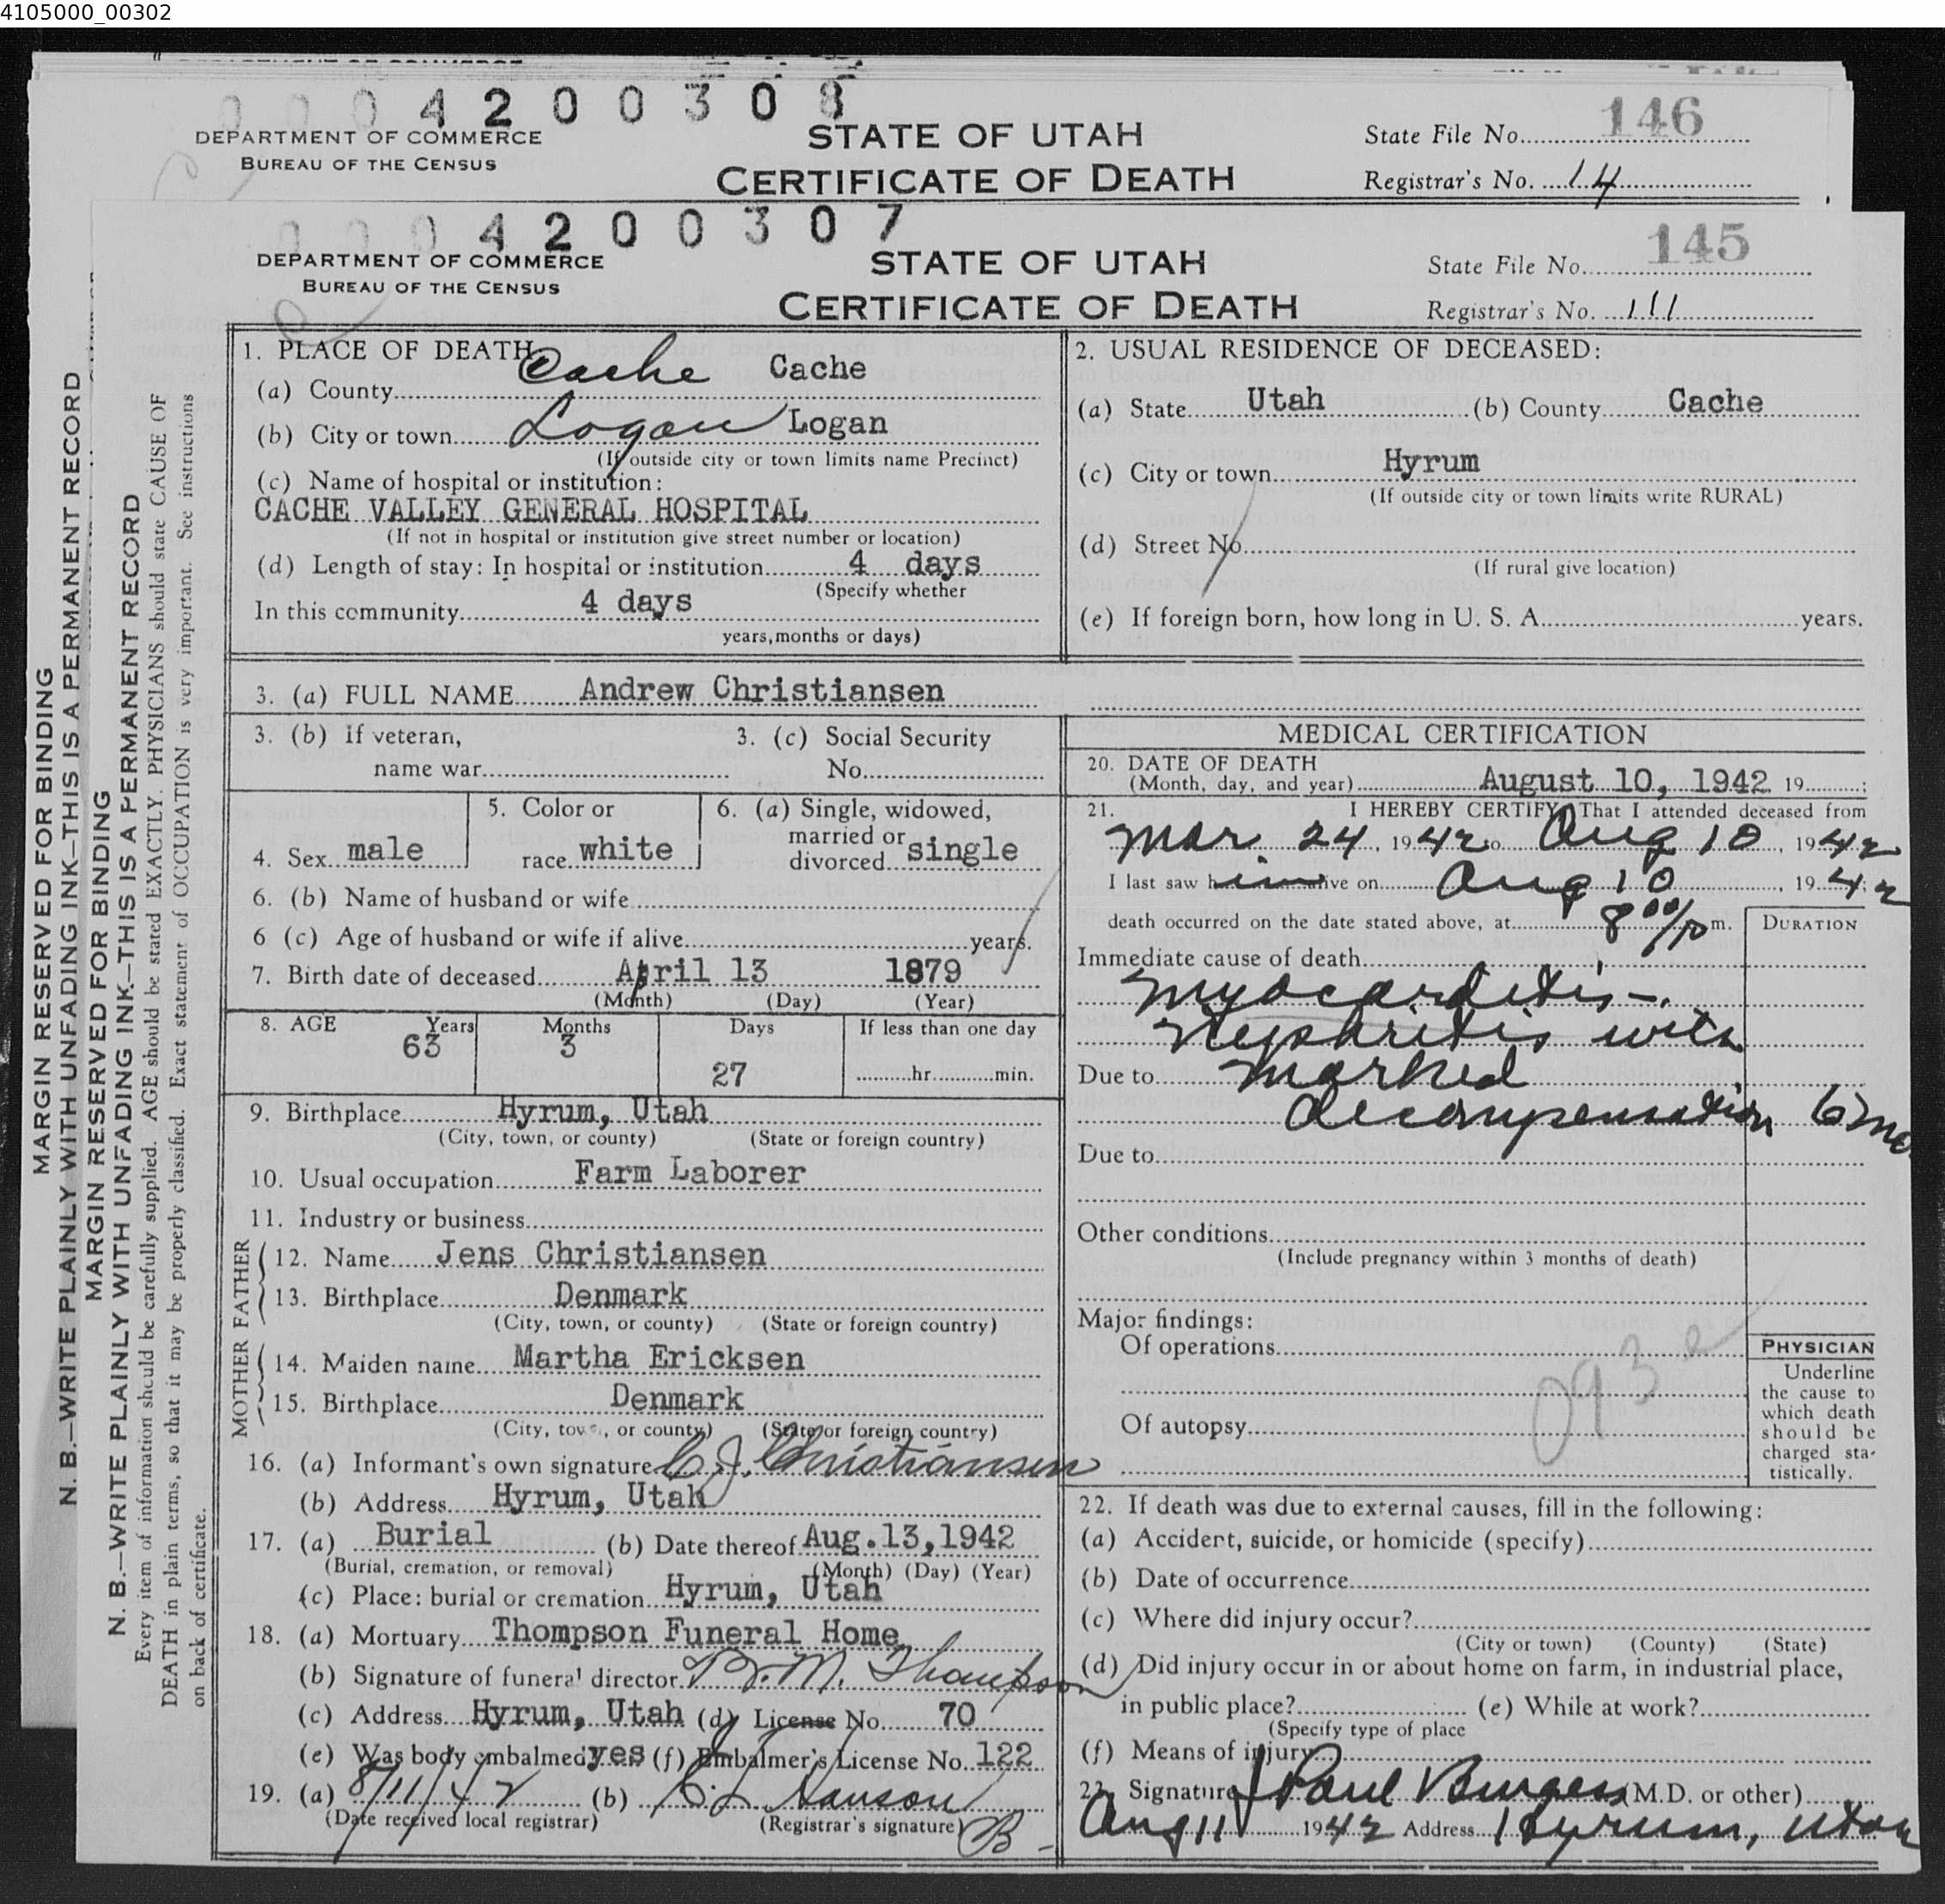 4105000_00302
0004200308
DEPARTMENT OF COMMERCE
BUREAU OF THE CENSUS
STATE OF UTAH
CERTIFICATE OF DEATH
State File No. 146
Registrar's No. 14
0004200307
DEPARTMENT OF COMMERCE
BUREAU OF THE CENSUS
STATE OF UTAH
CERTIFICATE OF DEATH
State File No. 145
Registrar's No. 111
MARGIN RESERVED FOR BINDING
N. B.—WRITE PLAINLY WITH UNFADING INK—THIS IS A PERMANENT RECORD
MARGIN RESERVED FOR BINDING
N. B.—WRITE PLAINLY WITH UNFADING INK—THIS IS A PERMANENT RECORD
Every item of information should be carefully supplied. AGE should be stated EXACTLY. PHYSICIANS should state CAUSE OF
DEATH in plain terms, so that it may be properly classified. Exact statement of OCCUPATION is very important. See instructions
on back of certificate.
1. PLACE OF DEATH
(a) County Cache Cache
(b) City or town Logan Logan
(If outside city or town limits name Precinct)
(c) Name of hospital or institution:
CACHE VALLEY GENERAL HOSPITAL
(If not in hospital or institution give street number or location)
(d) Length of stay: In hospital or institution 4 days
(Specify whether
In this community 4 days
years, months or days)
2. USUAL RESIDENCE OF DECEASED:
(a) State Utah (b) County Cache
(c) City or town Hyrum
(If outside city or town limits write RURAL)
(d) Street No.
(If rural give location)
(e) If foreign born, how long in U. S. A. years.
3. (a) FULL NAME Andrew Christiansen
3. (b) If veteran,
name war
3. (c) Social Security
No.
4. Sex male
5. Color or
race white
6. (a) Single, widowed,
married or
divorced single
6. (b) Name of husband or wife
6 (c) Age of husband or wife if alive years.
7. Birth date of deceased April 13 1879
(Month) (Day) (Year)
8. AGE Years Months Days If less than one day
63 3 27 hr. min.
9. Birthplace Hyrum, Utah
(City, town, or county) (State or foreign country)
10. Usual occupation Farm Laborer
11. Industry or business
FATHER
12. Name Jens Christiansen
13. Birthplace Denmark
(City, town, or county) (State or foreign country)
MOTHER
14. Maiden name Martha Ericksen
15. Birthplace Denmark
(City, town, or county) (State or foreign country)
16. (a) Informant's own signature C. J. Christiansen
(b) Address Hyrum, Utah
17. (a) Burial (b) Date thereof Aug. 13, 1942
(Burial, cremation, or removal) (Month) (Day) (Year)
(c) Place: burial or cremation Hyrum, Utah
18. (a) Mortuary Thompson Funeral Home
(b) Signature of funeral director M. Thompson
(c) Address Hyrum, Utah (d) License No. 70
(e) Was body embalmed yes (f) Embalmer's License No. 122
19. (a) 8/11/42 (b) Hanson
(Date received local registrar) (Registrar's signature)
B-
MEDICAL CERTIFICATION
20. DATE OF DEATH
(Month, day, and year) August 10, 1942 19 ;
21. I HEREBY CERTIFY, That I attended deceased from
Mar. 24, 1942 to Aug 10, 1942
I last saw him alive on Aug 10, 1942;
death occurred on the date stated above, at 8 00/P m.
DURATION
Immediate cause of death
Myocarditis -
Nephritis with
Due to Marked
decompensation 6 mo
Due to
Other conditions
(Include pregnancy within 3 months of death)
Major findings:
Of operations
Of autopsy
093 e
PHYSICIAN
Underline
the cause to
which death
should be
charged sta-
tistically.
22. If death was due to external causes, fill in the following:
(a) Accident, suicide, or homicide (specify)
(b) Date of occurrence
(c) Where did injury occur?
(City or town) (County) (State)
(d) Did injury occur in or about home on farm, in industrial place,
in public place? (e) While at work?
(Specify type of place
(f) Means of injury
23. Signature J Paul Burgess (M.D. or other)
Aug 11 1942 Address Hyrum, Utah